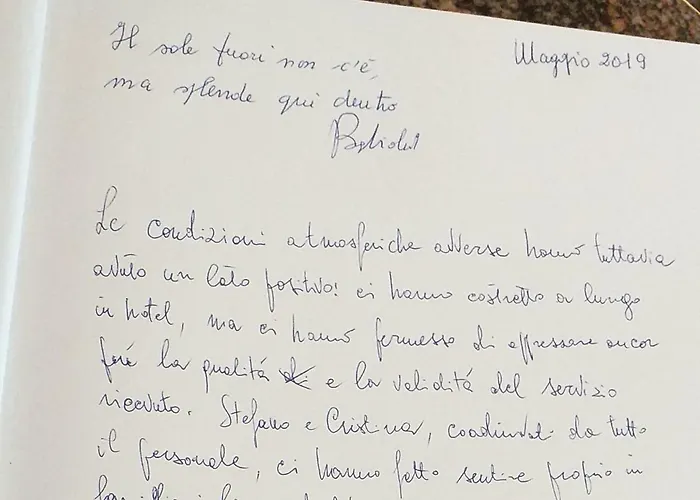 Il sole fuori non c'è,
Maggio 2019
ma splende qui dentro
Le condizioni atmosferiche avverse hanno tuttavia
avuto un lato positivo! ci hanno costretto a lungo
in hotel, ma ci hanno permesso di apprezzare ancor
più la qualità e la validità del servizio
ricevuto. Stefano e Cristina, coadiuvati da tutto
il personale, ci hanno fatto sentire proprio in